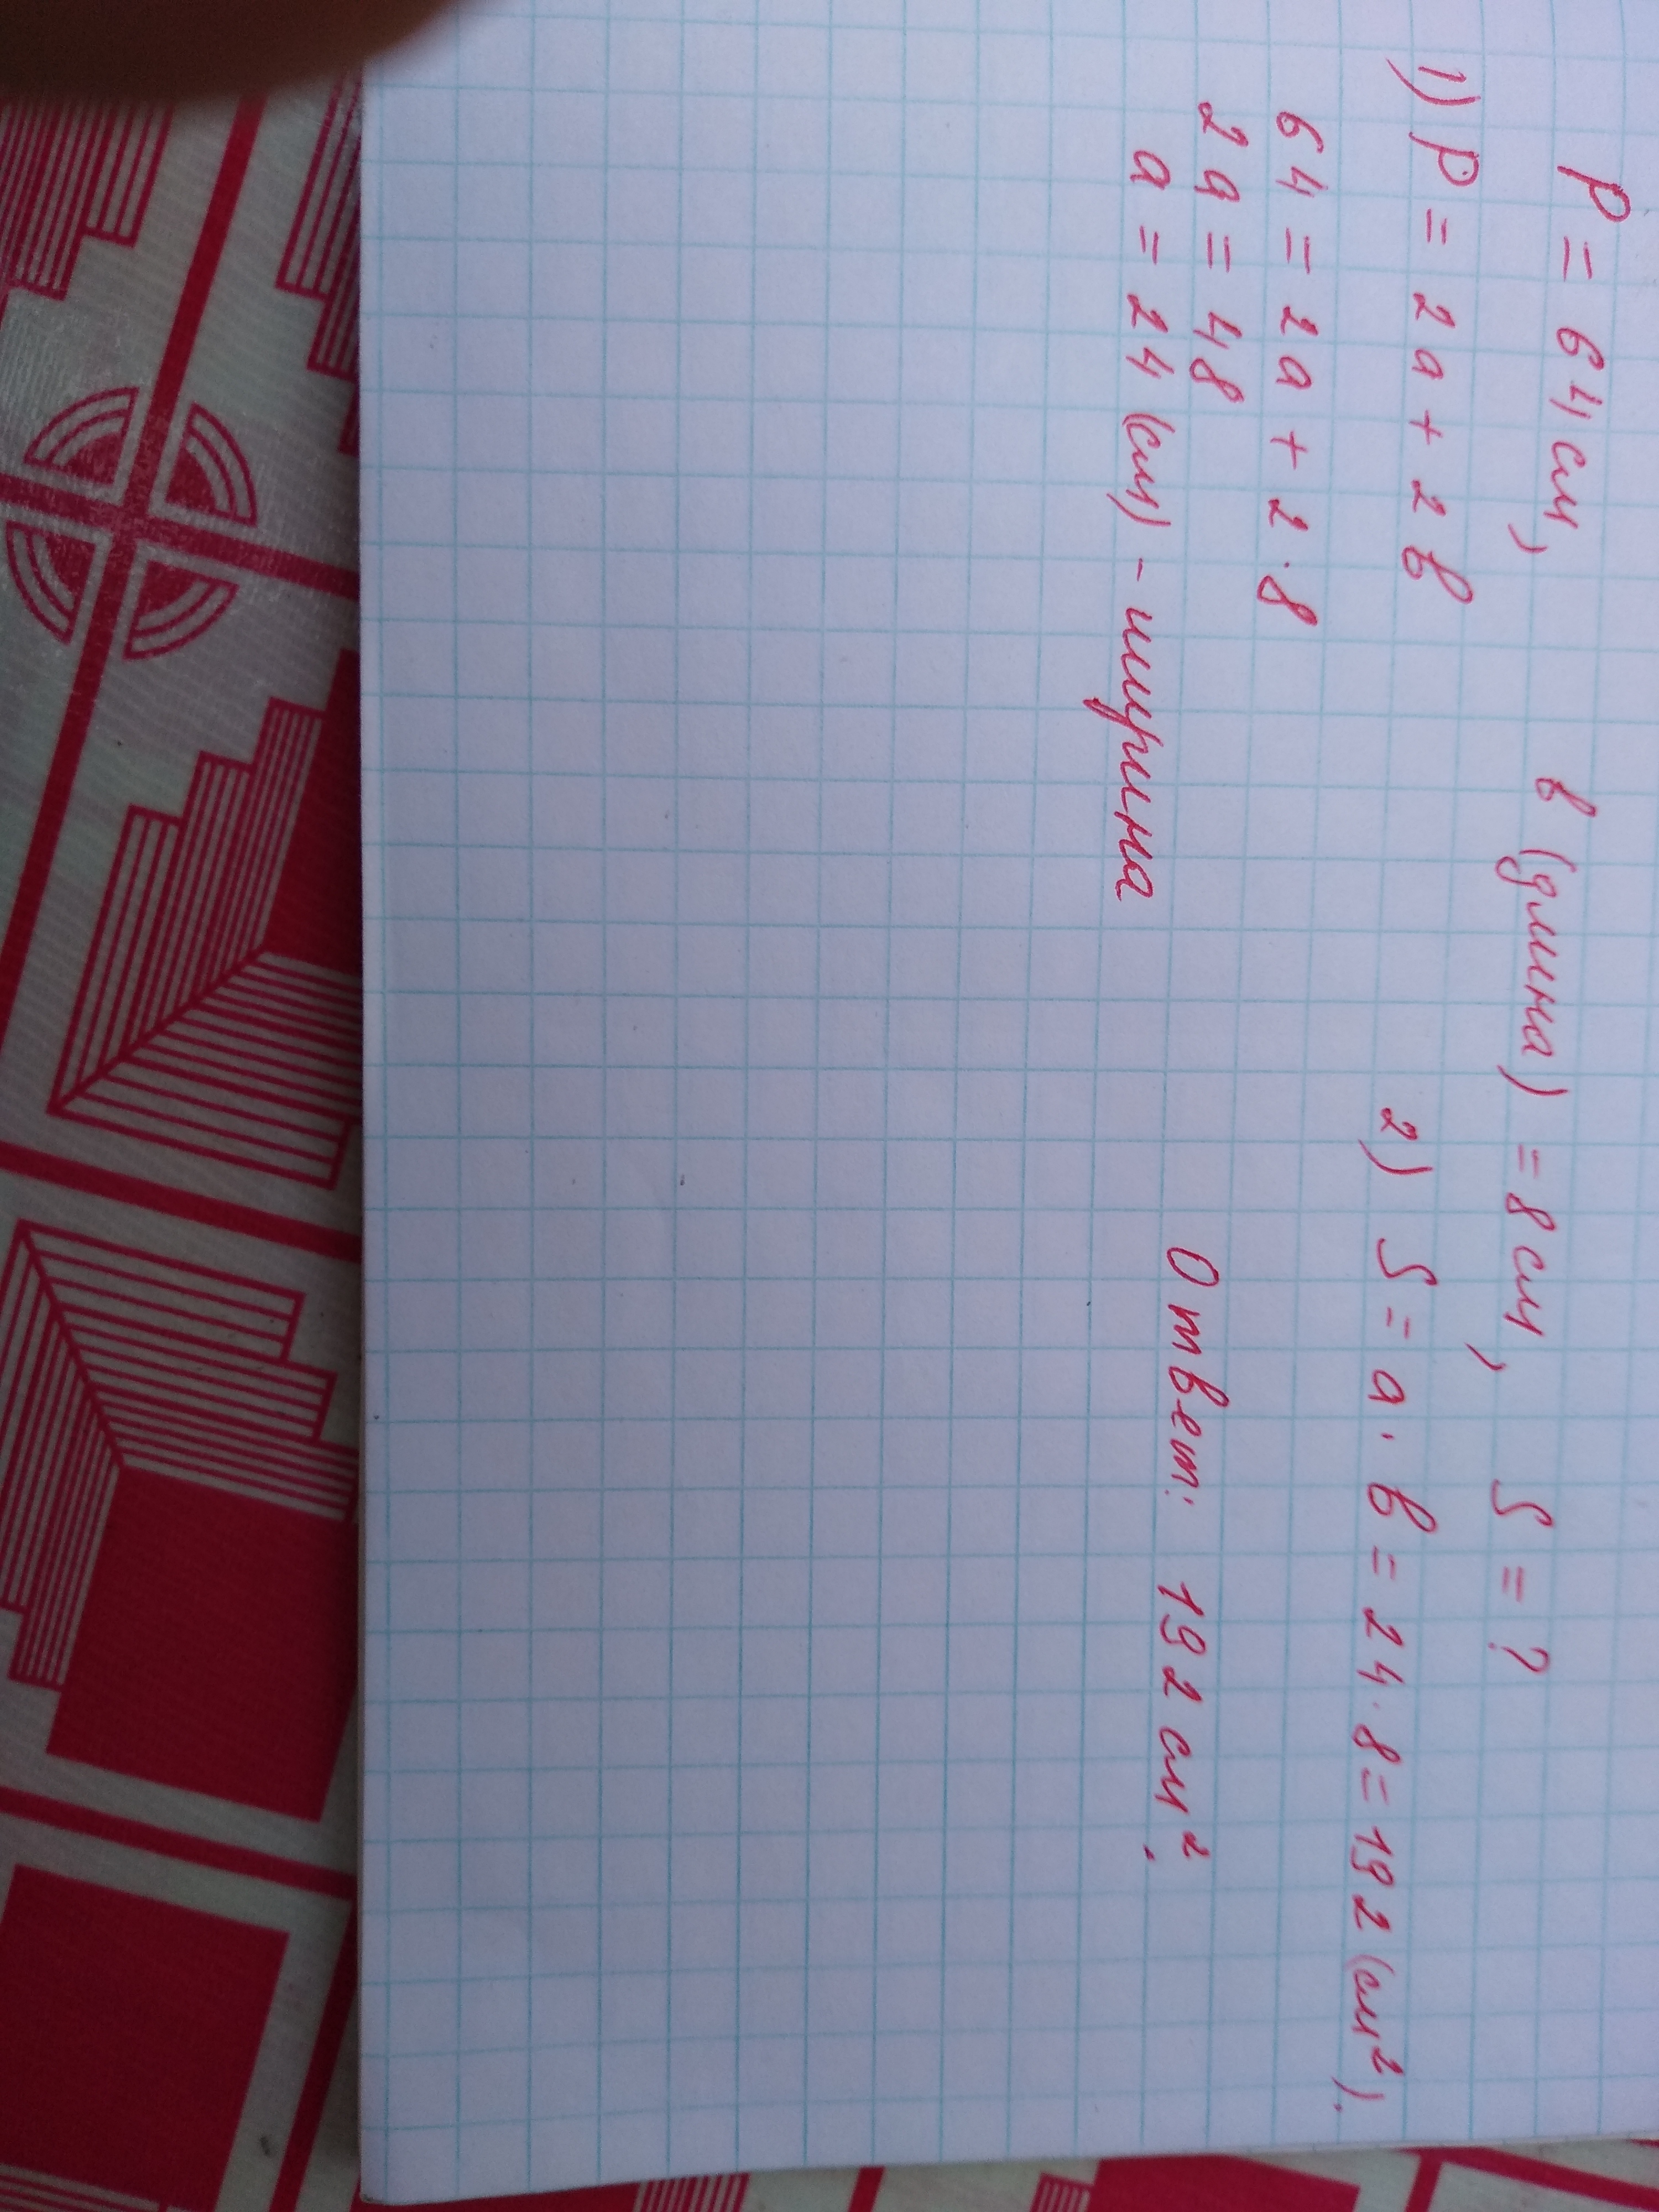 P = 64 см, в (длина) = 8 см, S = ?
1) P = 2а + 2в
64 = 2а + 2·8
2а = 48
а = 24 (см) - ширина
2) S = а · в = 24 · 8 = 192 (см²).
Ответ: 192 см².